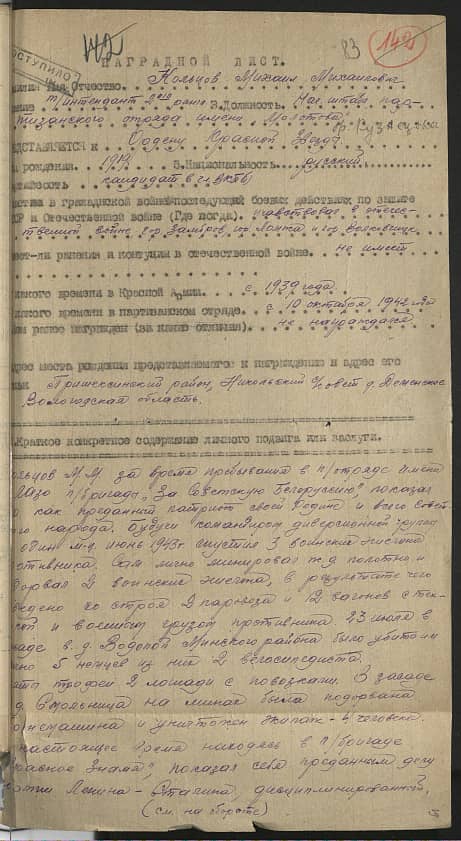 83
142
ПОСТУПИЛО
НАГРАДНОЙ ЛИСТ.
Отчество. Кольцов Михаил Михайлович
т/интендант 2го ранга 3.Должность. Нач. штаба пар-
тизанского отряда имени
ЕДСТАВЛЯЕТСЯ к Ордену Красной Звезды
рождения. 1919 5.Национальность. русский.
кандидат в чл. ВКП(б)
астие в гражданской войне последующий боевых действиях по защите
СССР и Отечественной войне (Где когда). участвовал в отече-
ственной войне гор.
ет-ли ранения и контузии в отечественной войне. не имеет
какого времени в Красной Армии. с 1939 года
какого времени в партизанском отряде. с 10 октября 1942 года
ем ранее награжден (за какие отличия). не награждался
дрес места рождения представляемого к награждению и адрес его
район, Никольский совет д.
Вологодская область.
.Краткое конкретное содержание личного подвига или заслуги.
ольцов М.М. за время пребывания в п/отряде имени
Лазо п/бригады "За Советскую Белоруссию", показал
как преданный патриот своей Родине и всего Совет-
народа. Будучи командиром диверсионной группы
один м-ц июнь 1943г. спустил 3 воинских эшелона
отивника. Сам лично минировал ж.д. полотно и
зорвал 2 воинских эшелона, в результате чего
ведено из строя 2 паровоза и 12 вагонов с тех-
кой и военным грузом противника. 23 июля в
саде в д. Водопой Минского района было убито им
но 5 немцев из них 2 велосипедиста.
яты трофеи 2 лошади с повозками. В засаде
д. на минах была подорвана
и уничтожен экипаж - 4 человека.
настоящее время находясь в п/бригаде
расное Знамя", показал себя преданным делу
Ленина-Сталина, дисциплинированный,
(см. на обороте)